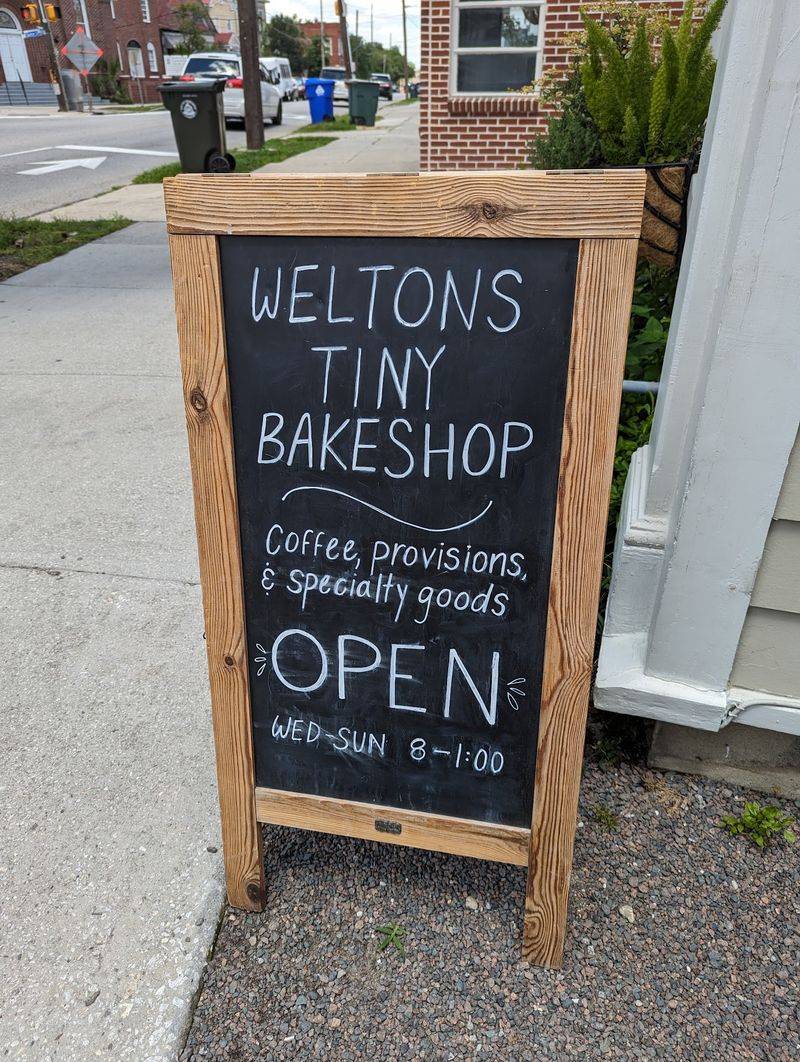 WELTONS
TINY
BAKESHOP
Coffee, provisions,
& specialty goods
OPEN
WED-SUN 8-1:00